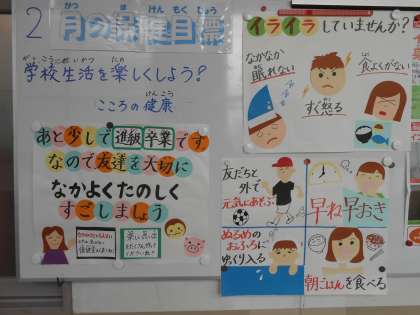 2
月の保健目標
がっこうせいかつ たの
学校生活を楽しくしよう?
けんこう
こころの健康
あと少しで進級卒業です
なので友達を大切に
なかよくたのしく
すごしましょう
イライラしていませんか?
なかなか
眠れない
すぐ怒る
食よくがない
友だちと
外で
元気にあそぶ
早ね早おき
ぬるめの
おふろに
ゆっくり入る
朝ごはんを食べる